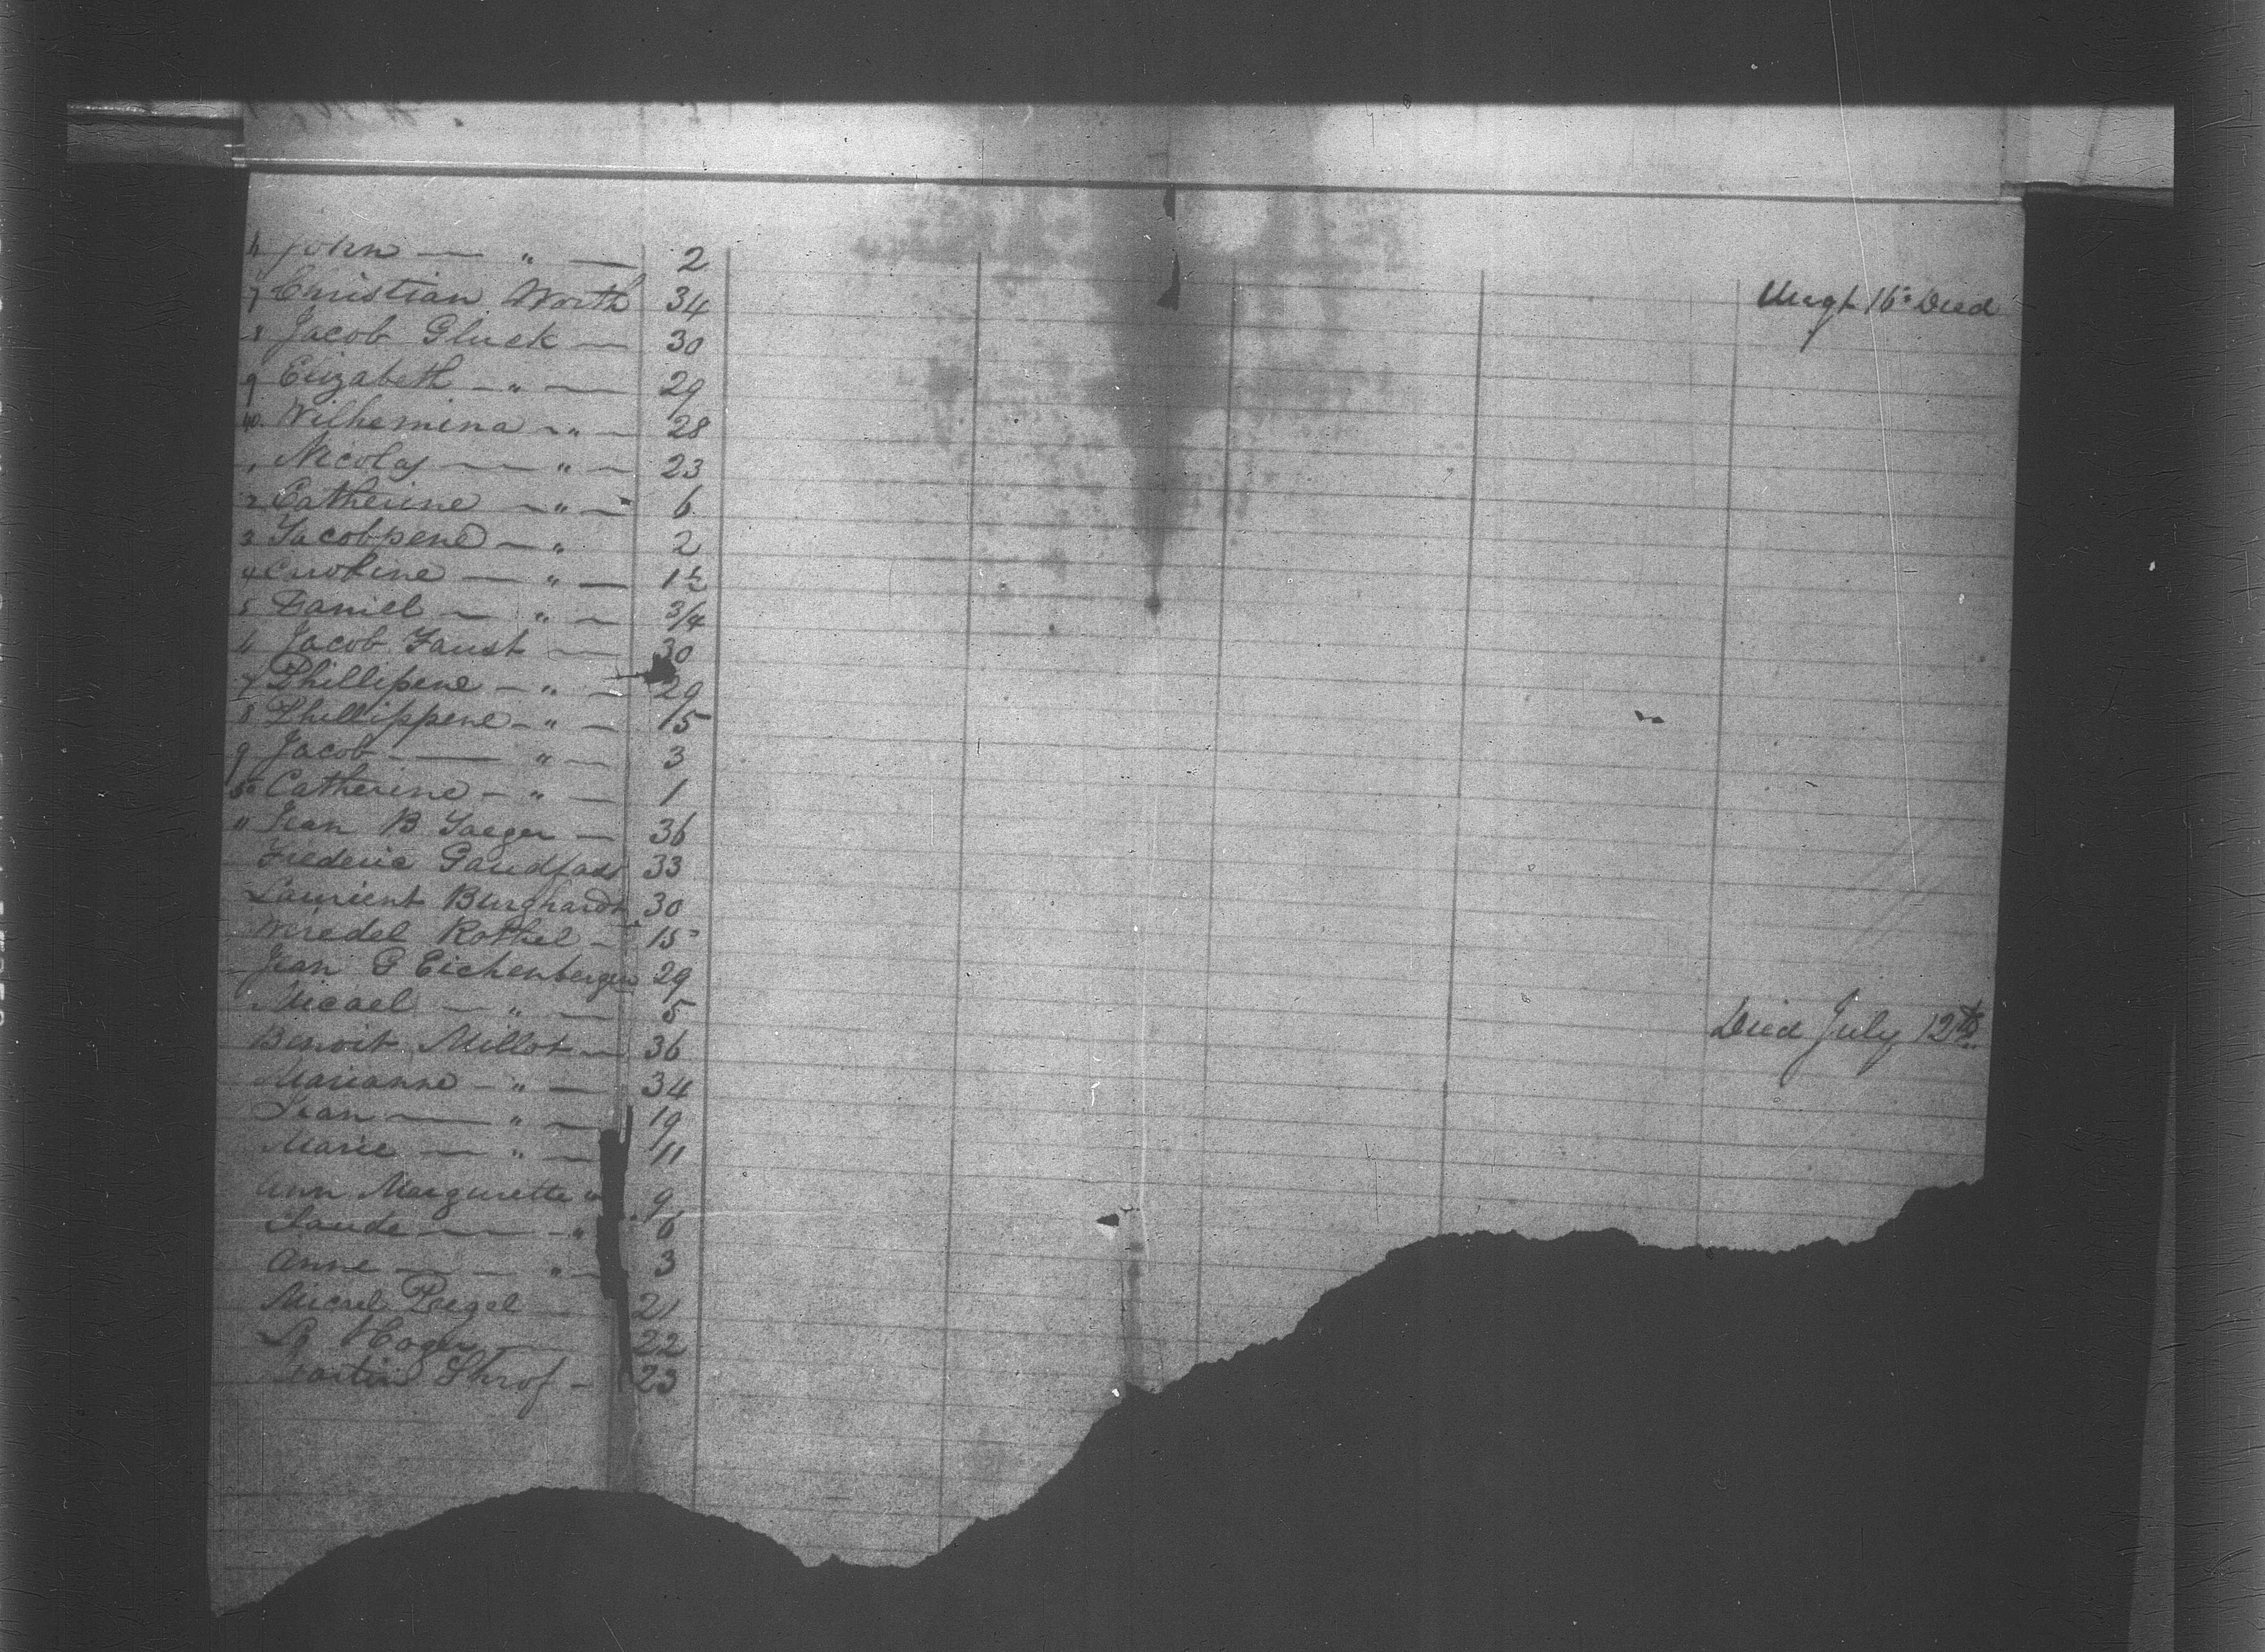 6 John — " — 2
7 Christian Worth 34 Augt 16th Died
8 Jacob Gluck — 30
9 Elizabeth — " — 29
40 Wilhemina — " — 28
1 Nicolas — " — 23
2 Catherine — " — 6
3 Jacobpene — " 2
4 Caroline — " — 1½
5 Daniel — " — 3/4
6 Jacob Faust — 30
7 Phillipene — " — 29
8 Phillippene — " — 15
9 Jacob — " — 3
50 Catherine — " — 1
" Jean B Jaeger — 36
Frederic 33
Laurient Burghardt 30
Rothel — 15
Jean G Eichenberger 29
Micael — " — 5 Died July 12th
Benoit Millot — 36
Marianne — " — 34
Jean — " — 19
Marie — " — 11
Ann Margurette " 9
Claude — " 6
Anne — " — 3
Micael 21
22
Martin Shrof — 23